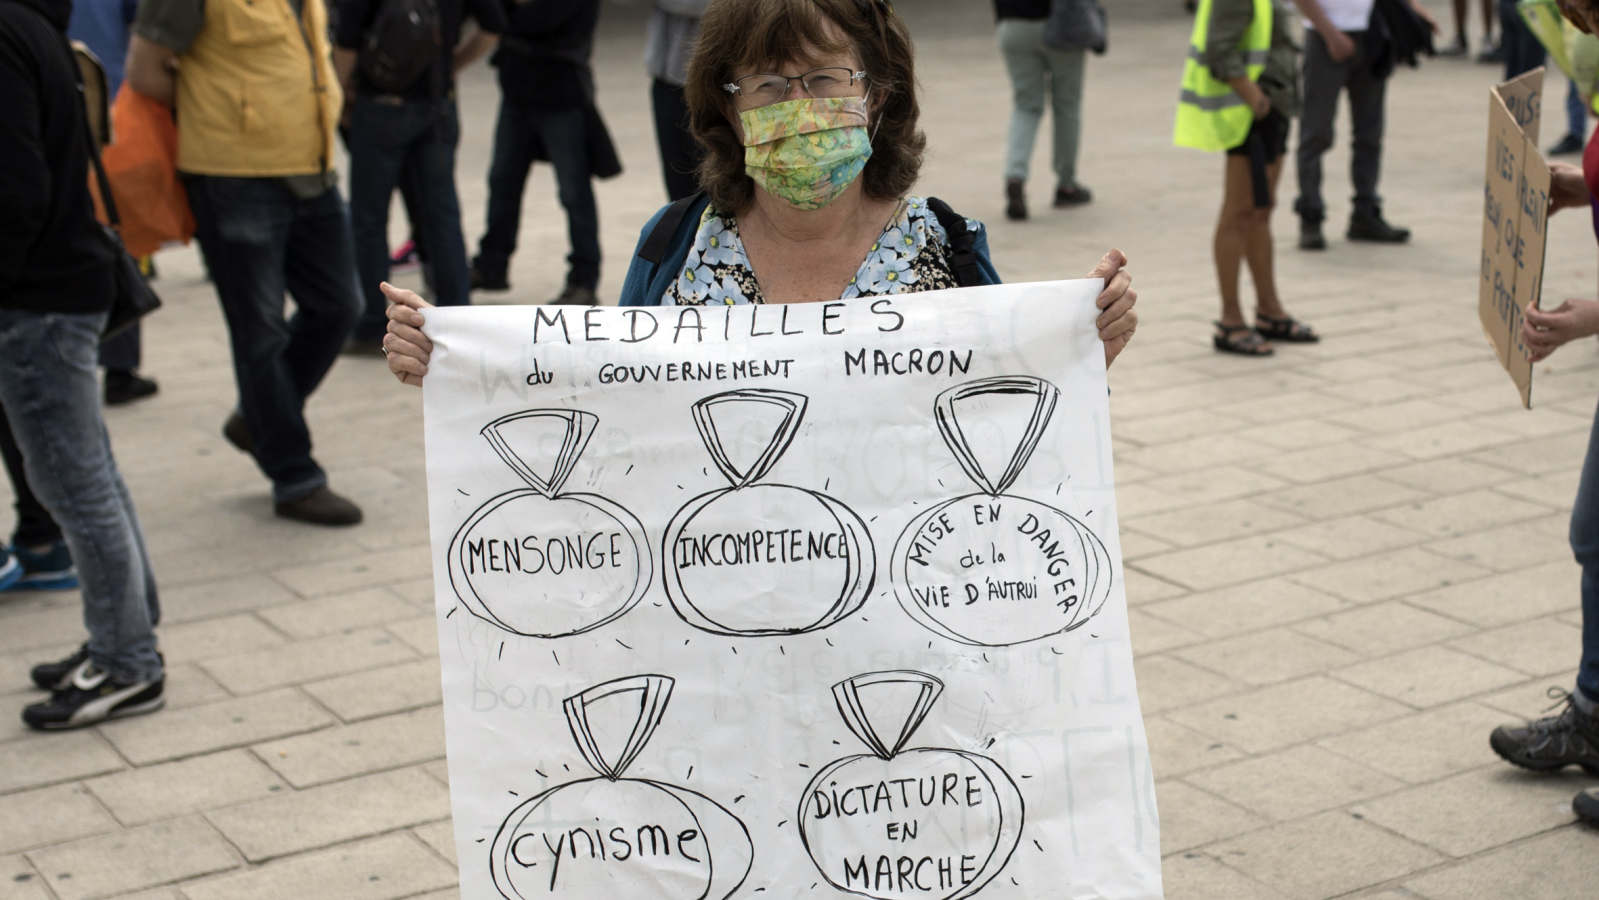 MEDAILLES
du GOUVERNEMENT MACRON
MENSONGE
INCOMPETENCE
MISE EN DANGER
de la
ViE D'AUTRUi
cynisme
DiCTATURE
EN
MARCHE
ViES VALENT
QUE